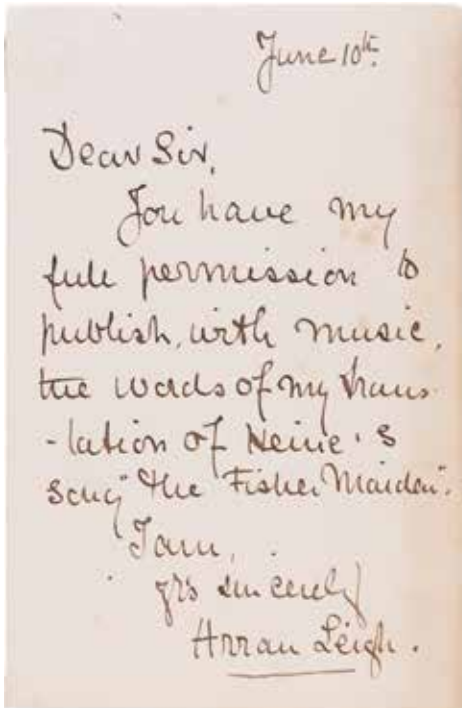 June 10th.
Dear Sir,
You have my
full permission to
publish, with music,
the words of my trans-
-lation of Heine's
song "the Fisher Maiden".
I am,
yrs sincerely
Arran Leigh.